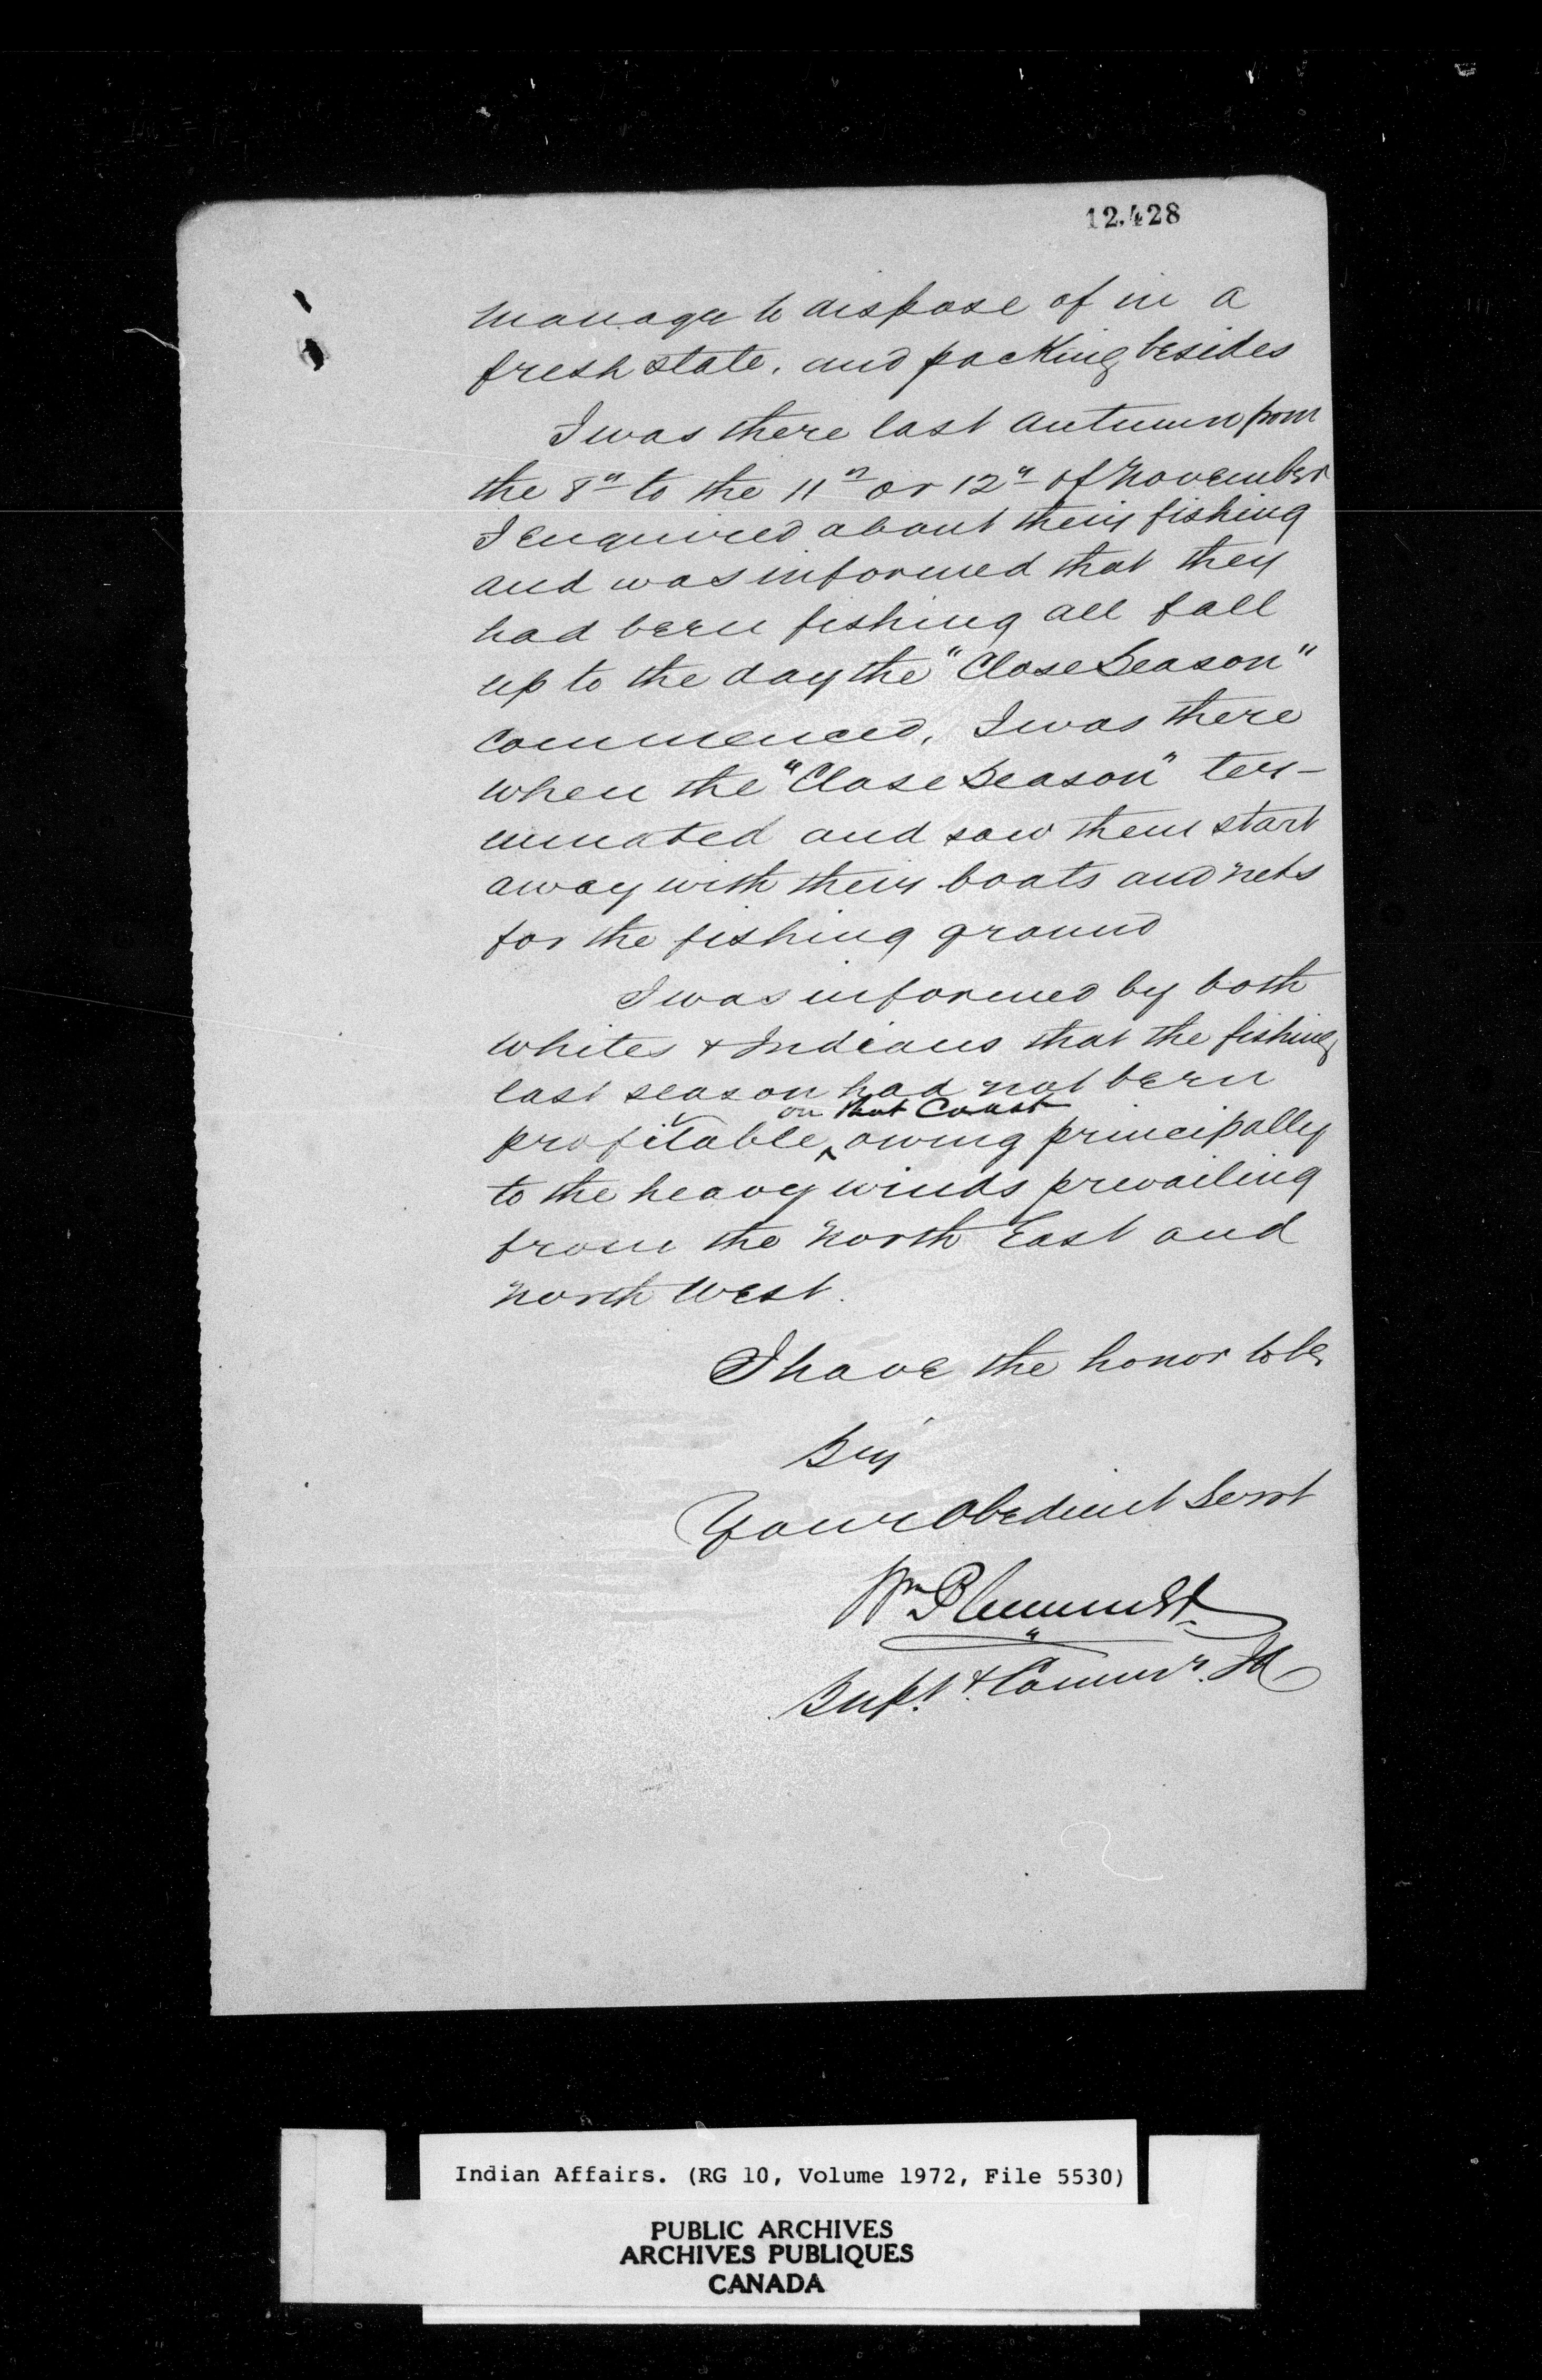 12,428
manage to dispose of in a
fresh state, and packing besides
I was there last autumn from
the 8" to the 11" or 12" of November
I enquired about their fishing
and was informed that they
had been fishing all fall
up to the day the "Close Season"
commenced, I was there
when the "Close Season" ter-
minated and saw them start
away with their boats and nets
for the fishing ground
I was informed by both
whites & Indians that the fishing
last season had not been
on that Coast
profitable, owing principally
to the heavy winds prevailing
from the North East and
North West.
I have the honor to be,
Sir
Your Obedient Servt
Wm Plummer
Supt. & Commr. IA
Indian Affairs. (RG 10, Volume 1972, File 5530)
PUBLIC ARCHIVES
ARCHIVES PUBLIQUES
CANADA